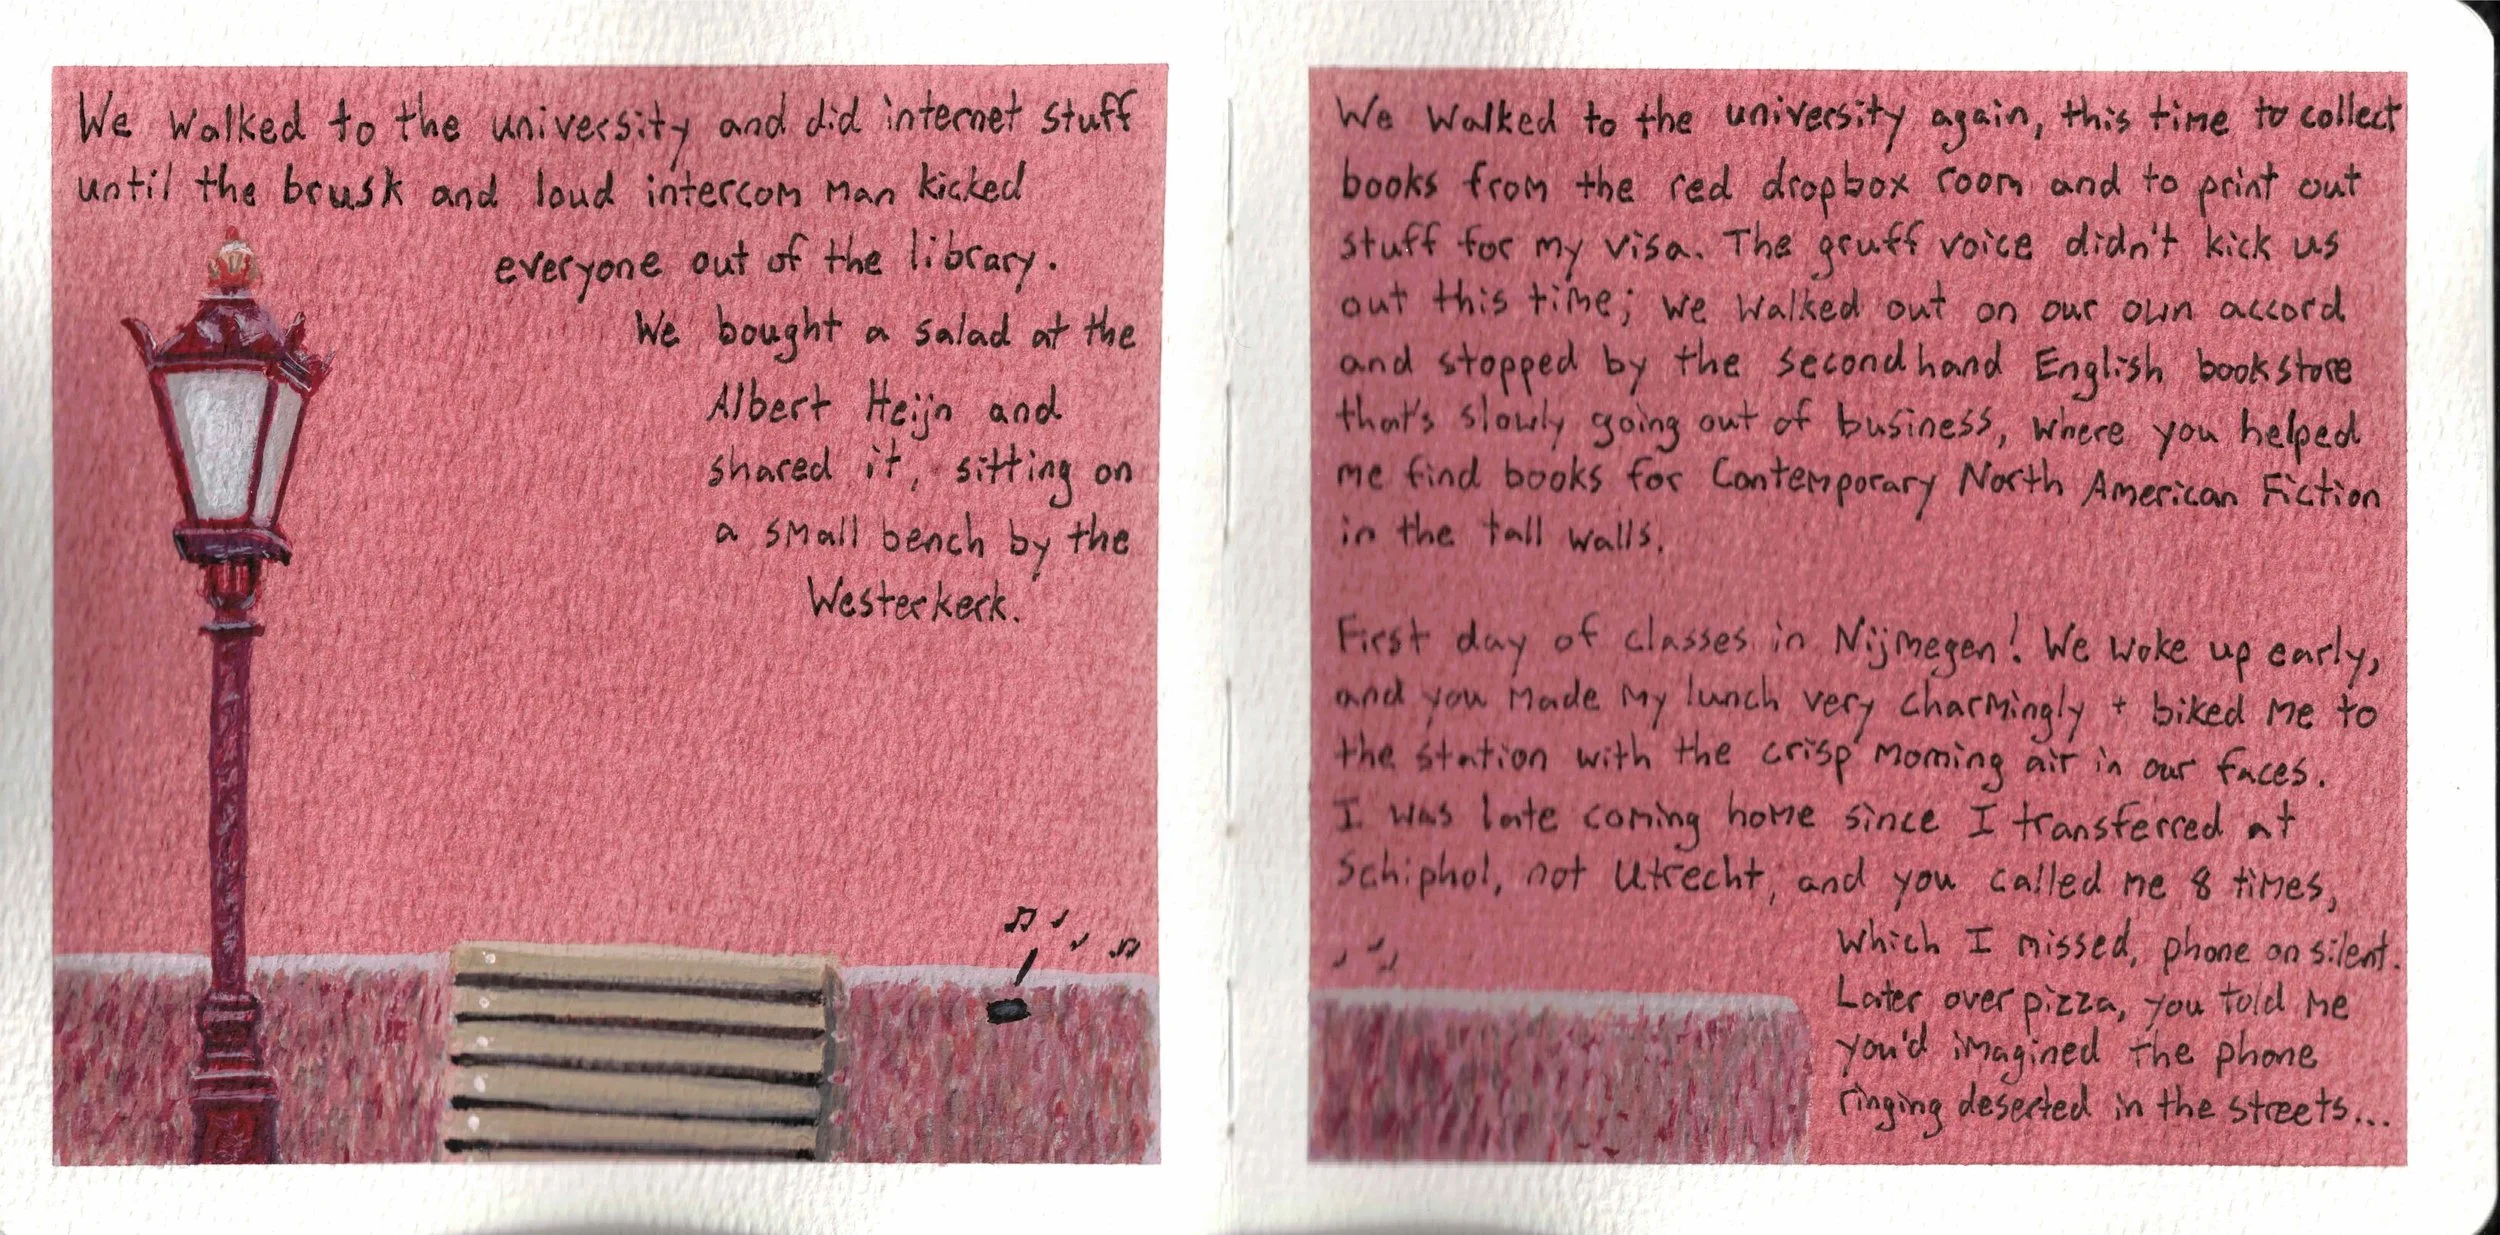 We walked to the university and did internet stuff
until the brusk and loud intercom man kicked
everyone out of the library.
We bought a salad at the
Albert Heijn and
shared it, sitting on
a small bench by the
Westerkerk.
We walked to the university again, this time to collect
books from the red dropbox room and to print out
stuff for my visa. The gruff voice didn't kick us
out this time; we walked out on our own accord
and stopped by the secondhand English bookstore
that's slowly going out of business, where you helped
me find books for Contemporary North American Fiction
in the tall walls.
First day of classes in Nijmegen! We woke up early,
and you made my lunch very charmingly + biked me to
the station with the crisp morning air in our faces.
I was late coming home since I transferred at
Schiphol, not Utrecht, and you called me 8 times,
which I missed, phone on silent.
Later over pizza, you told me
you'd imagined the phone
ringing deserted in the streets...